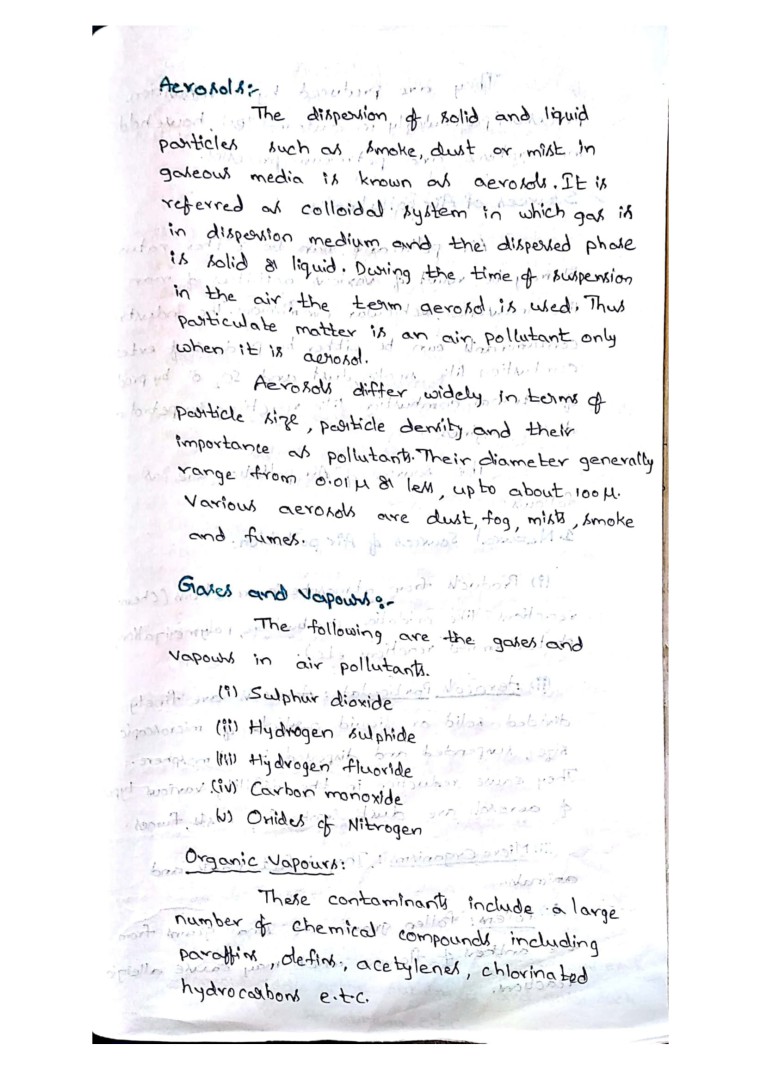 Aerosols:-
The dispersion of solid and liquid
particles such as smoke, dust or mist in
gaseous media is known as aerosols. It is
referred as colloidal system in which gas is
in dispersion medium and the dispersed phase
is solid or liquid. During the time of suspension
in the air, the term aerosol is used. Thus
particulate matter is an air pollutant only
when it is aerosol.
Aerosols differ widely in terms of
particle size, particle density and their
importance as pollutants. Their diameter generally
range from 0.01 μ or less, up to about 100 μ.
Various aerosols are dust, fog, mists, smoke
and fumes.
Gases and Vapours:-
The following are the gases and
vapours in air pollutants.
(i) Sulphur dioxide
(ii) Hydrogen sulphide
(iii) Hydrogen fluoride
(iv) Carbon monoxide
(v) Oxides of Nitrogen
Organic Vapours:
These contaminants include a large
number of chemical compounds, including
paraffins, olefins, acetylenes, chlorinated
hydrocarbons e.t.c.